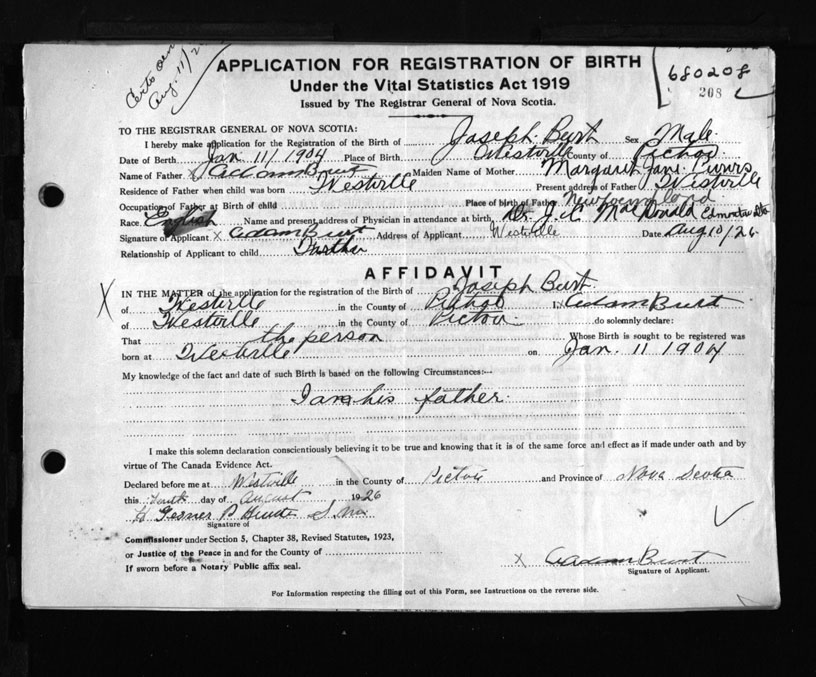 Certo sen
Aug. 11/2
APPLICATION FOR REGISTRATION OF BIRTH
680208
Under the Vital Statistics Act 1919
208
Issued by The Registrar General of Nova Scotia.
TO THE REGISTRAR GENERAL OF NOVA SCOTIA:
I hereby make application for the Registration of the Birth of Joseph Burt Sex Male
Date of Birth Jan 11/1904 Place of Birth Westville County of Pictou
Name of Father Adam Burt Maiden Name of Mother Margaret Jane
Residence of Father when child was born Westville Present address of Father Westville
Occupation of Father at Birth of child Place of birth of Father
Race English Name and present address of Physician in attendance at birth Dr. J. C MacDonald
Signature of Applicant X Adam Burt Address of Applicant Westville Date Aug 10/26
Relationship of Applicant to child Farther
AFFIDAVIT
X IN THE MATTER of the application for the registration of the Birth of Joseph Burt
of Westville in the County of Pictou I, Adam Burt
of Westville in the County of Pictou do solemnly declare:
That the person Whose Birth is sought to be registered was
born at Westville on Jan. 11 1904
My knowledge of the fact and date of such Birth is based on the following Circumstances:—
I am his father.
I make this solemn declaration conscientiously believing it to be true and knowing that it is of the same force and effect as if made under oath and by
virtue of The Canada Evidence Act.
Declared before me at Westville in the County of Pictou and Province of Nova Scotia
this Tenth day of August 1926
Signature of
Commissioner under Section 5, Chapter 38, Revised Statutes, 1923,
or Justice of the Peace in and for the County of
X Adam Burt
If sworn before a Notary Public affix seal.
Signature of Applicant.
For Information respecting the filling out of this Form, see Instructions on the reverse side.